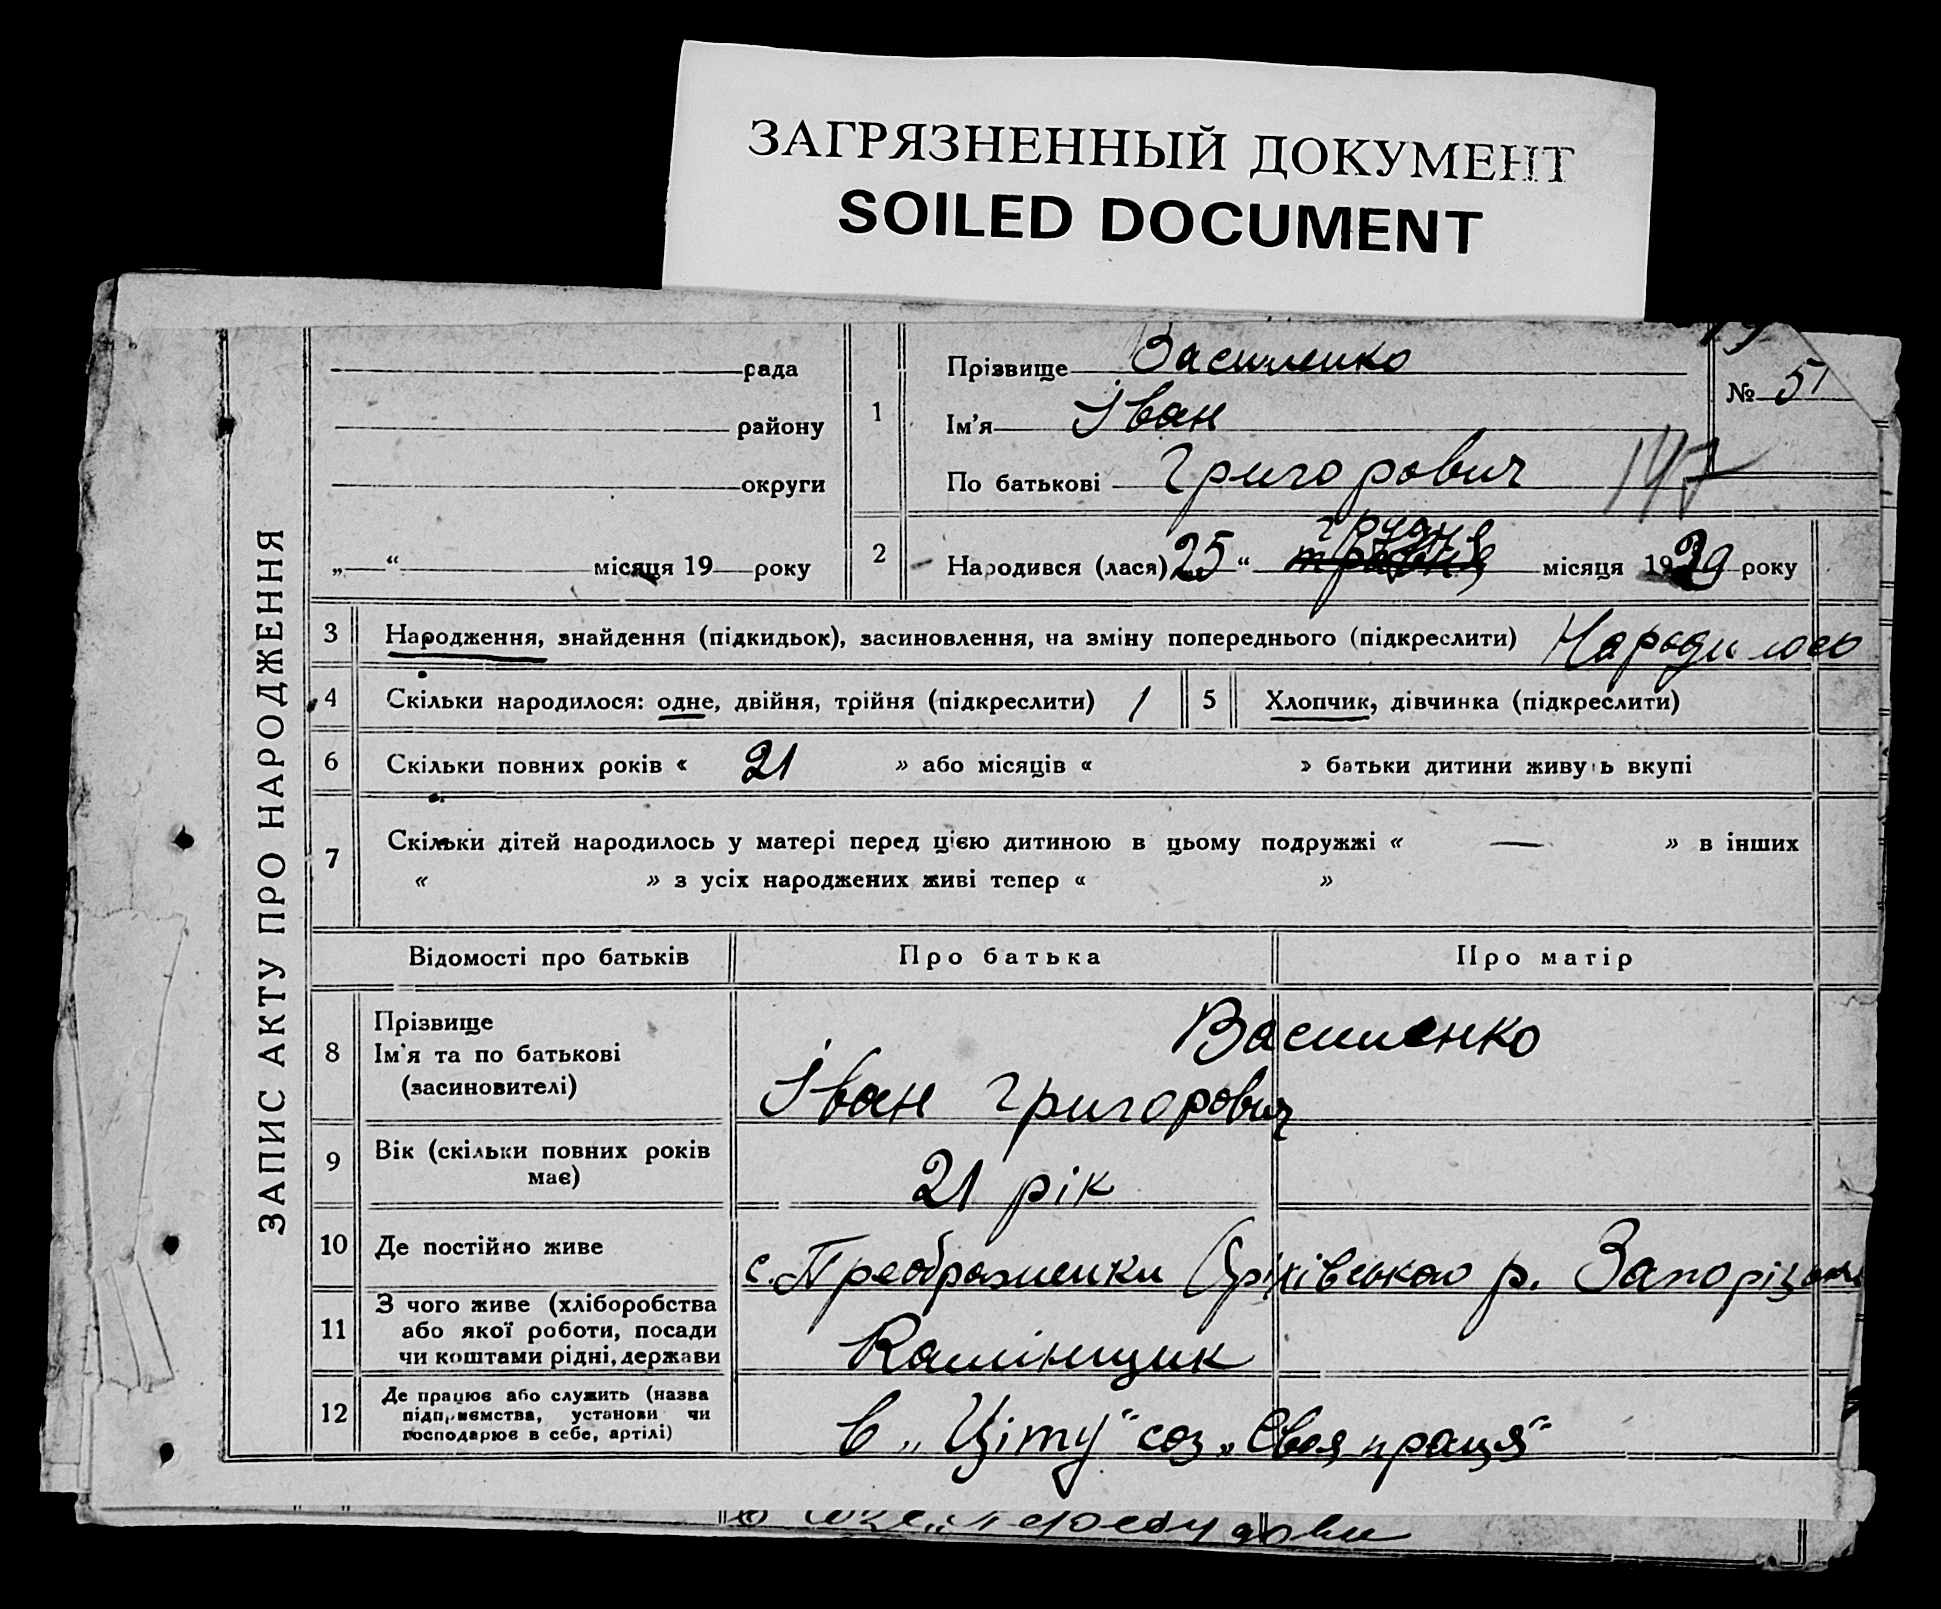 ЗАГРЯЗНЕННЫЙ ДОКУМЕНТ
SOILED DOCUMENT
ЗАПИС АКТУ ПРО НАРОДЖЕННЯ
рада
району
округи
„ “ місяця 19 року
1 Прізвище Василенко
Ім’я Іван
По батькові Григорович
№ 51
147
2 Народився (лася) 25 “ грудня місяця 1939 року
3 Народження, знайдення (підкидьок), засиновлення, на зміну попереднього (підкреслити) Народилось
4 Скільки народилося: одне, двійня, трійня (підкреслити) 1
5 Хлопчик, дівчинка (підкреслити)
6 Скільки повних років « 21 » або місяців « » батьки дитини живуть вкупі
7 Скільки дітей народилось у матері перед цією дитиною в цьому подружжі « — » в інших
« » з усіх народжених живі тепер « »
Відомості про батьків Про батька Про матір
8 Прізвище
Ім’я та по батькові
(засиновителі)
Василенко
Іван Григорович
9 Вік (скільки повних років
має)
21 рік
10 Де постійно живе
с. Преображенки Оріхівського р.
11 З чого живе (хліборобства
або якої роботи, посади
чи коштами рідні, держави
Камінщик
12 Де працює або служить (назва
підприємства, установи чи
господарює в себе, артілі)
в „Ціту“ соз „Своя праця“